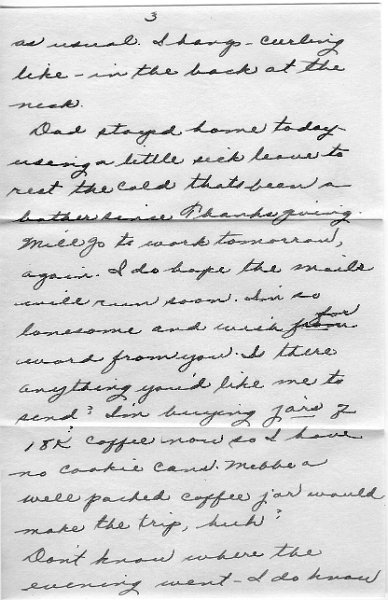 3
as usual. I hangs - curling
like - in the back at the
neck.
Dad stayed home today -
using a little sick leave to
rest the cold thats been a
bother since Thanksgiving.
Will go to work tomorrow,
again. I do hope the mails
will run soon. Im so
lonesome and wish for
word from you. Is there
anything you'd like me to
send? Im buying jars of
coffee now so I have
no cookie cans. Mebbe a
well packed coffee jar would
make the trip, huh?
Don't know where the
evening went - I do know